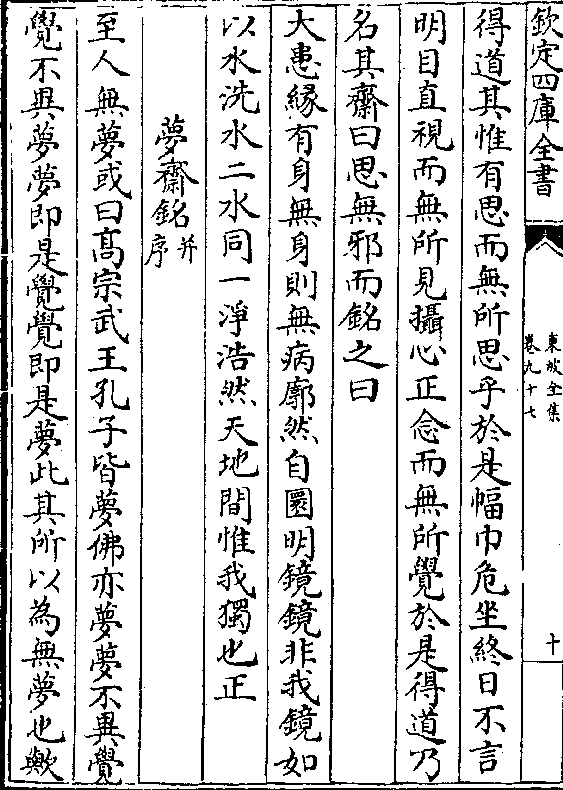 欽定四庫全書
東坡全集
卷九十七
十
得道其惟有思而無所思乎於是幅巾危坐終日不言
明目直視而無所見攝心正念而無所覺於是得道乃
名其齋曰思無邪而銘之曰
大患緣有身無身則無病廓然自圜明鏡鏡非我鏡如
以水洗水二水同一淨浩然天地間惟我獨也正
夢齋銘并序
至人無夢或曰髙宗武王孔子皆夢佛亦夢夢不異覺
覺不異夢夢即是覺覺即是夢此其所以為無夢也歟